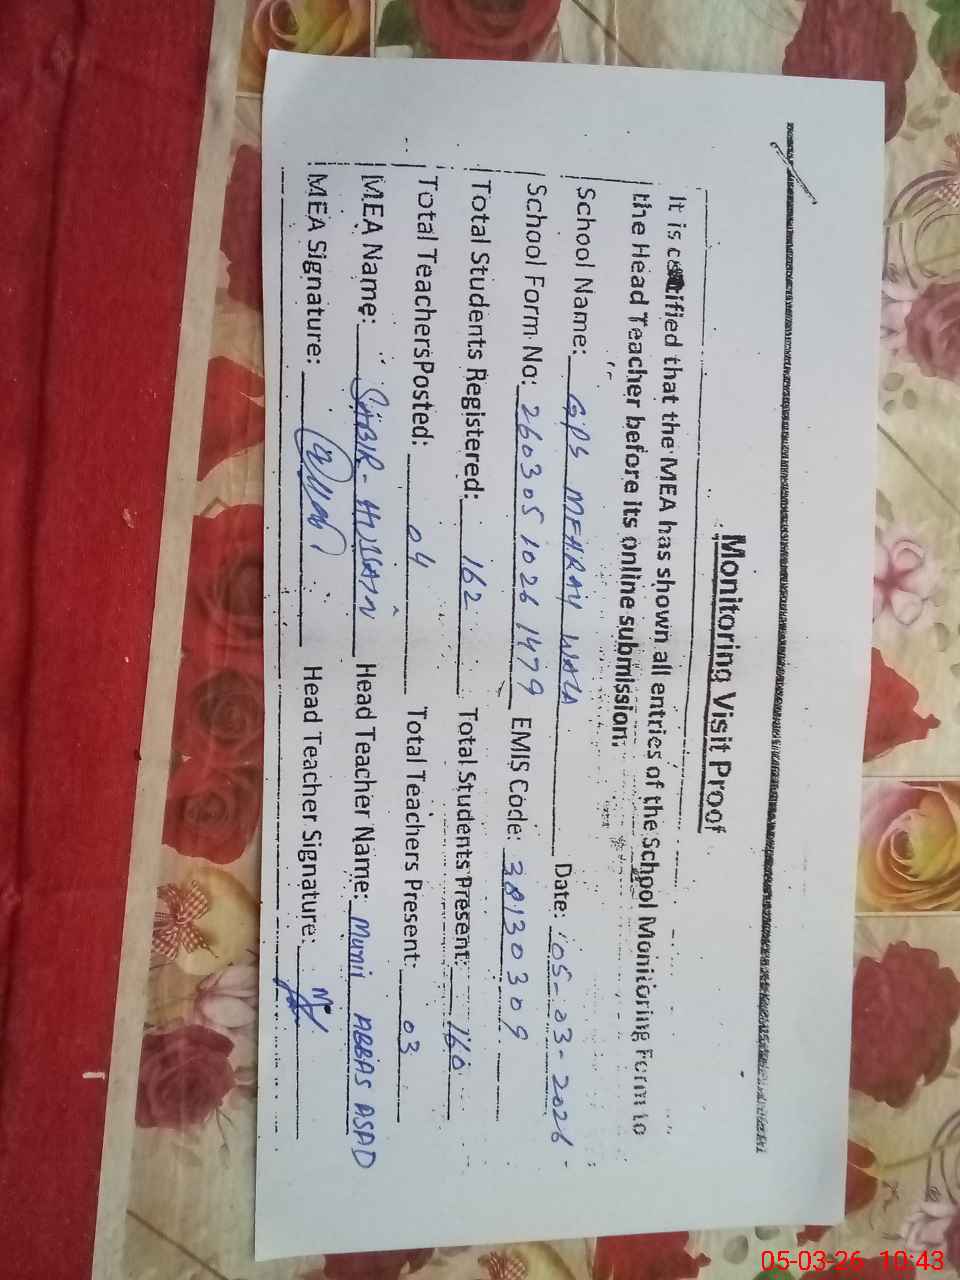 Monitoring Visit Proof
It is certified that the MEA has shown all entries of the School Monitoring Form to
the Head Teacher before its online submission.
School Name: GPS MEHRAY WALA Date: 05-03-2026
School Form No: 260305 1026 1479 EMIS Code: 38130309
Total Students Registered: 162 Total Students Present: 160
Total Teachers Posted: 04 Total Teachers Present: 03
MEA Name: SABIR-HUSSAIN Head Teacher Name: ABBAS ASAD
MEA Signature: Head Teacher Signature:
05-03-26 10:43